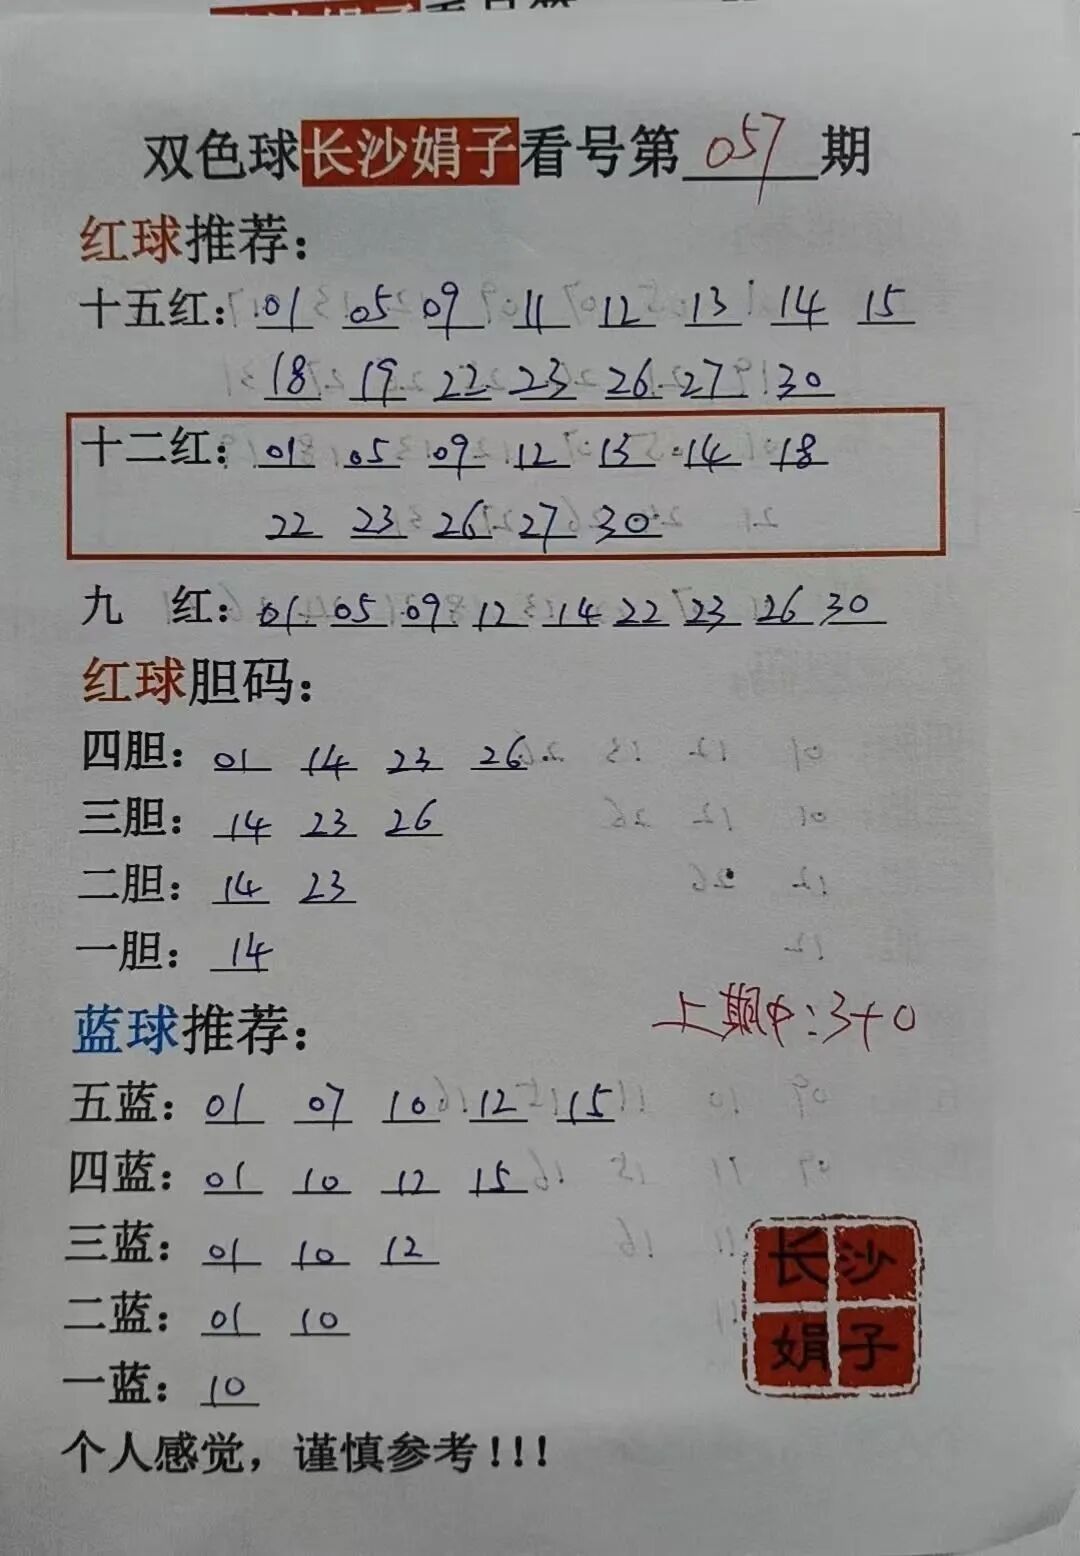 双色球长沙娟子看号第057期
红球推荐：
十五红：01 05 09 11 12 13 14 15
18 19 22 23 26 27 30
十二红：01 05 09 12 13 14 18
22 23 26 27 30
九 红：01 05 09 12 14 22 23 26 30
红球胆码：
四胆：01 14 23 26
三胆：14 23 26
二胆：14 23
一胆：14
蓝球推荐：
上期中：3+0
五蓝：01 07 10 12 15
四蓝：01 10 12 15
三蓝：01 10 12
二蓝：01 10
一蓝：10
长沙
娟子
个人感觉，谨慎参考！！！